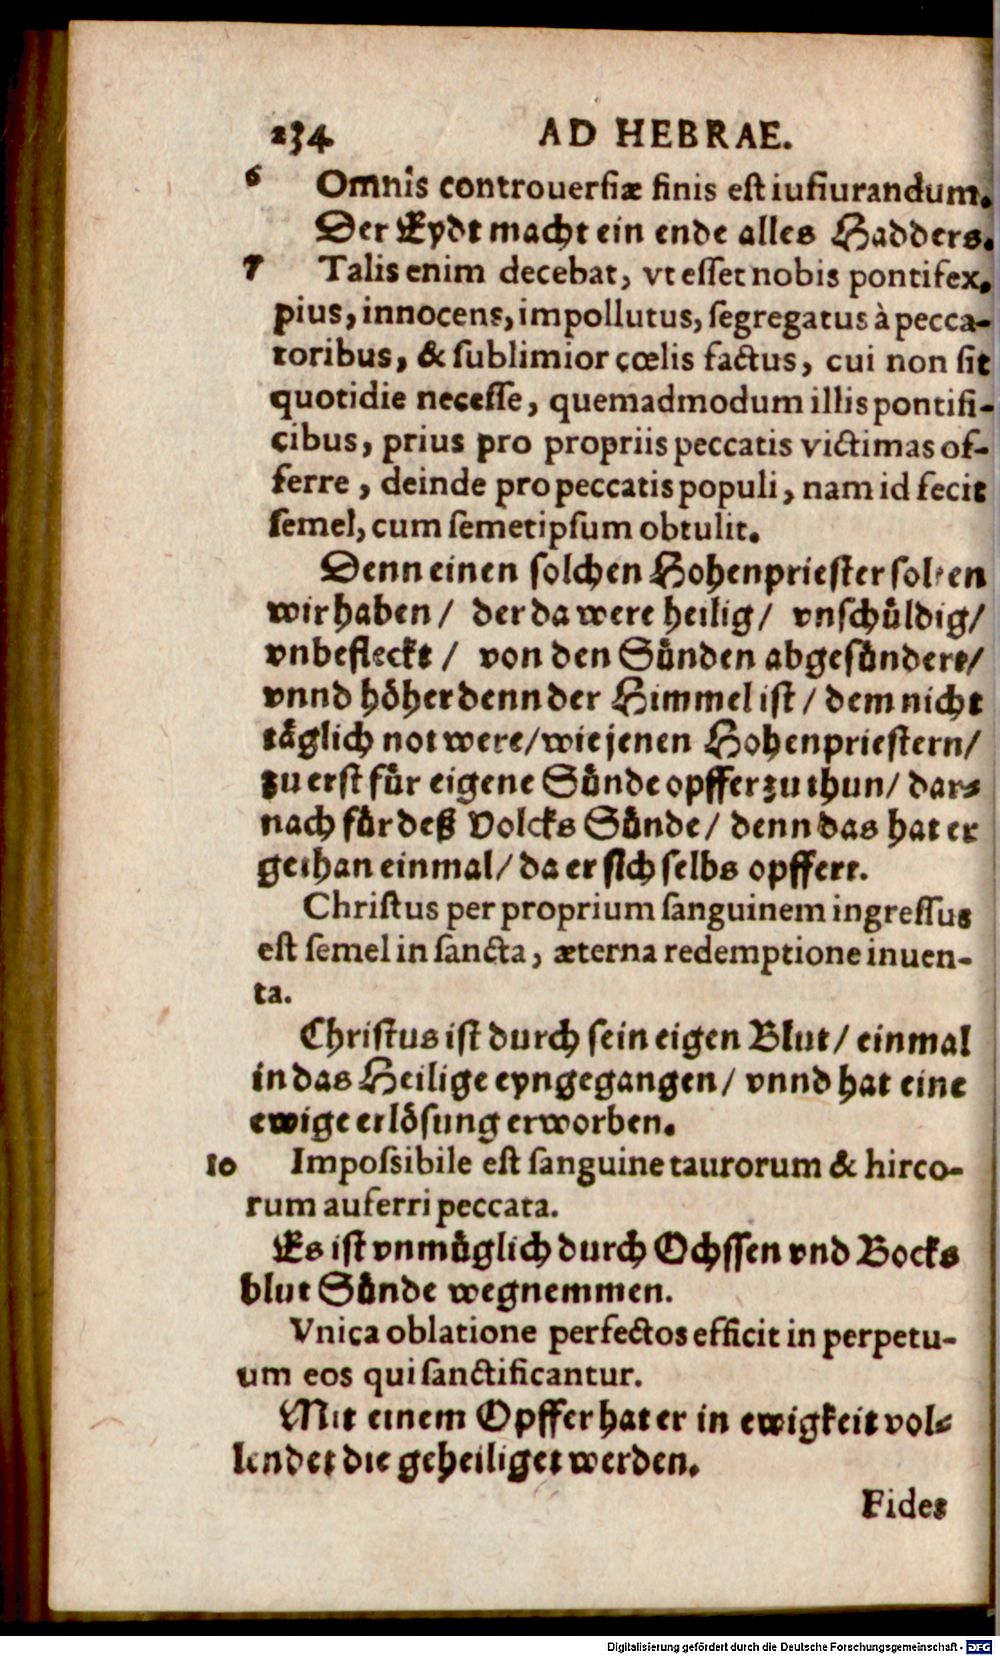 234 AD HEBRAE.
6 Omnis controuersiæ finis est iusiurandum.
Der Eydt macht ein ende alles Hadders.
7 Talis enim decebat, vt esset nobis pontifex,
pius, innocens, impollutus, segregatus à pecca-
toribus, & sublimior cœlis factus, cui non sit
quotidie necesse, quemadmodum illis pontifi-
cibus, prius pro propriis peccatis victimas of-
ferre, deinde pro peccatis populi, nam id fecit
semel, cum semetipsum obtulit.
Denn einen solchen Hohenpriester solten
wir haben / der da were heilig / vnschůldig /
vnbefleckt / von den Sůnden abgesůndert /
vnnd hôher denn der Himmel ist / dem nicht
tåglich not were / wie jenen Hohenpriestern /
zu erst fůr eigene Sůnde opffer zu thun / dar-
nach fůr deß Volcks Sůnde / denn das hat er
gethan einmal / da er sich selbs opffert.
Christus per proprium sanguinem ingressus
est semel in sancta, æterna redemptione inuen-
ta.
Christus ist durch sein eigen Blut / einmal
in das Heilige eyngegangen / vnnd hat eine
ewige erlôsung erworben.
10 Impossibile est sanguine taurorum & hirco-
rum auferri peccata.
Es ist vnmůglich durch Ochssen vnd Bocks
blut Sůnde wegnemmen.
Vnica oblatione perfectos efficit in perpetu-
um eos qui sanctificantur.
Mit einem Opffer hat er in ewigkeit vol-
lendet die geheiliget werden.
Fides
Digitalisierung gefördert durch die Deutsche Forschungsgemeinschaft - DFG